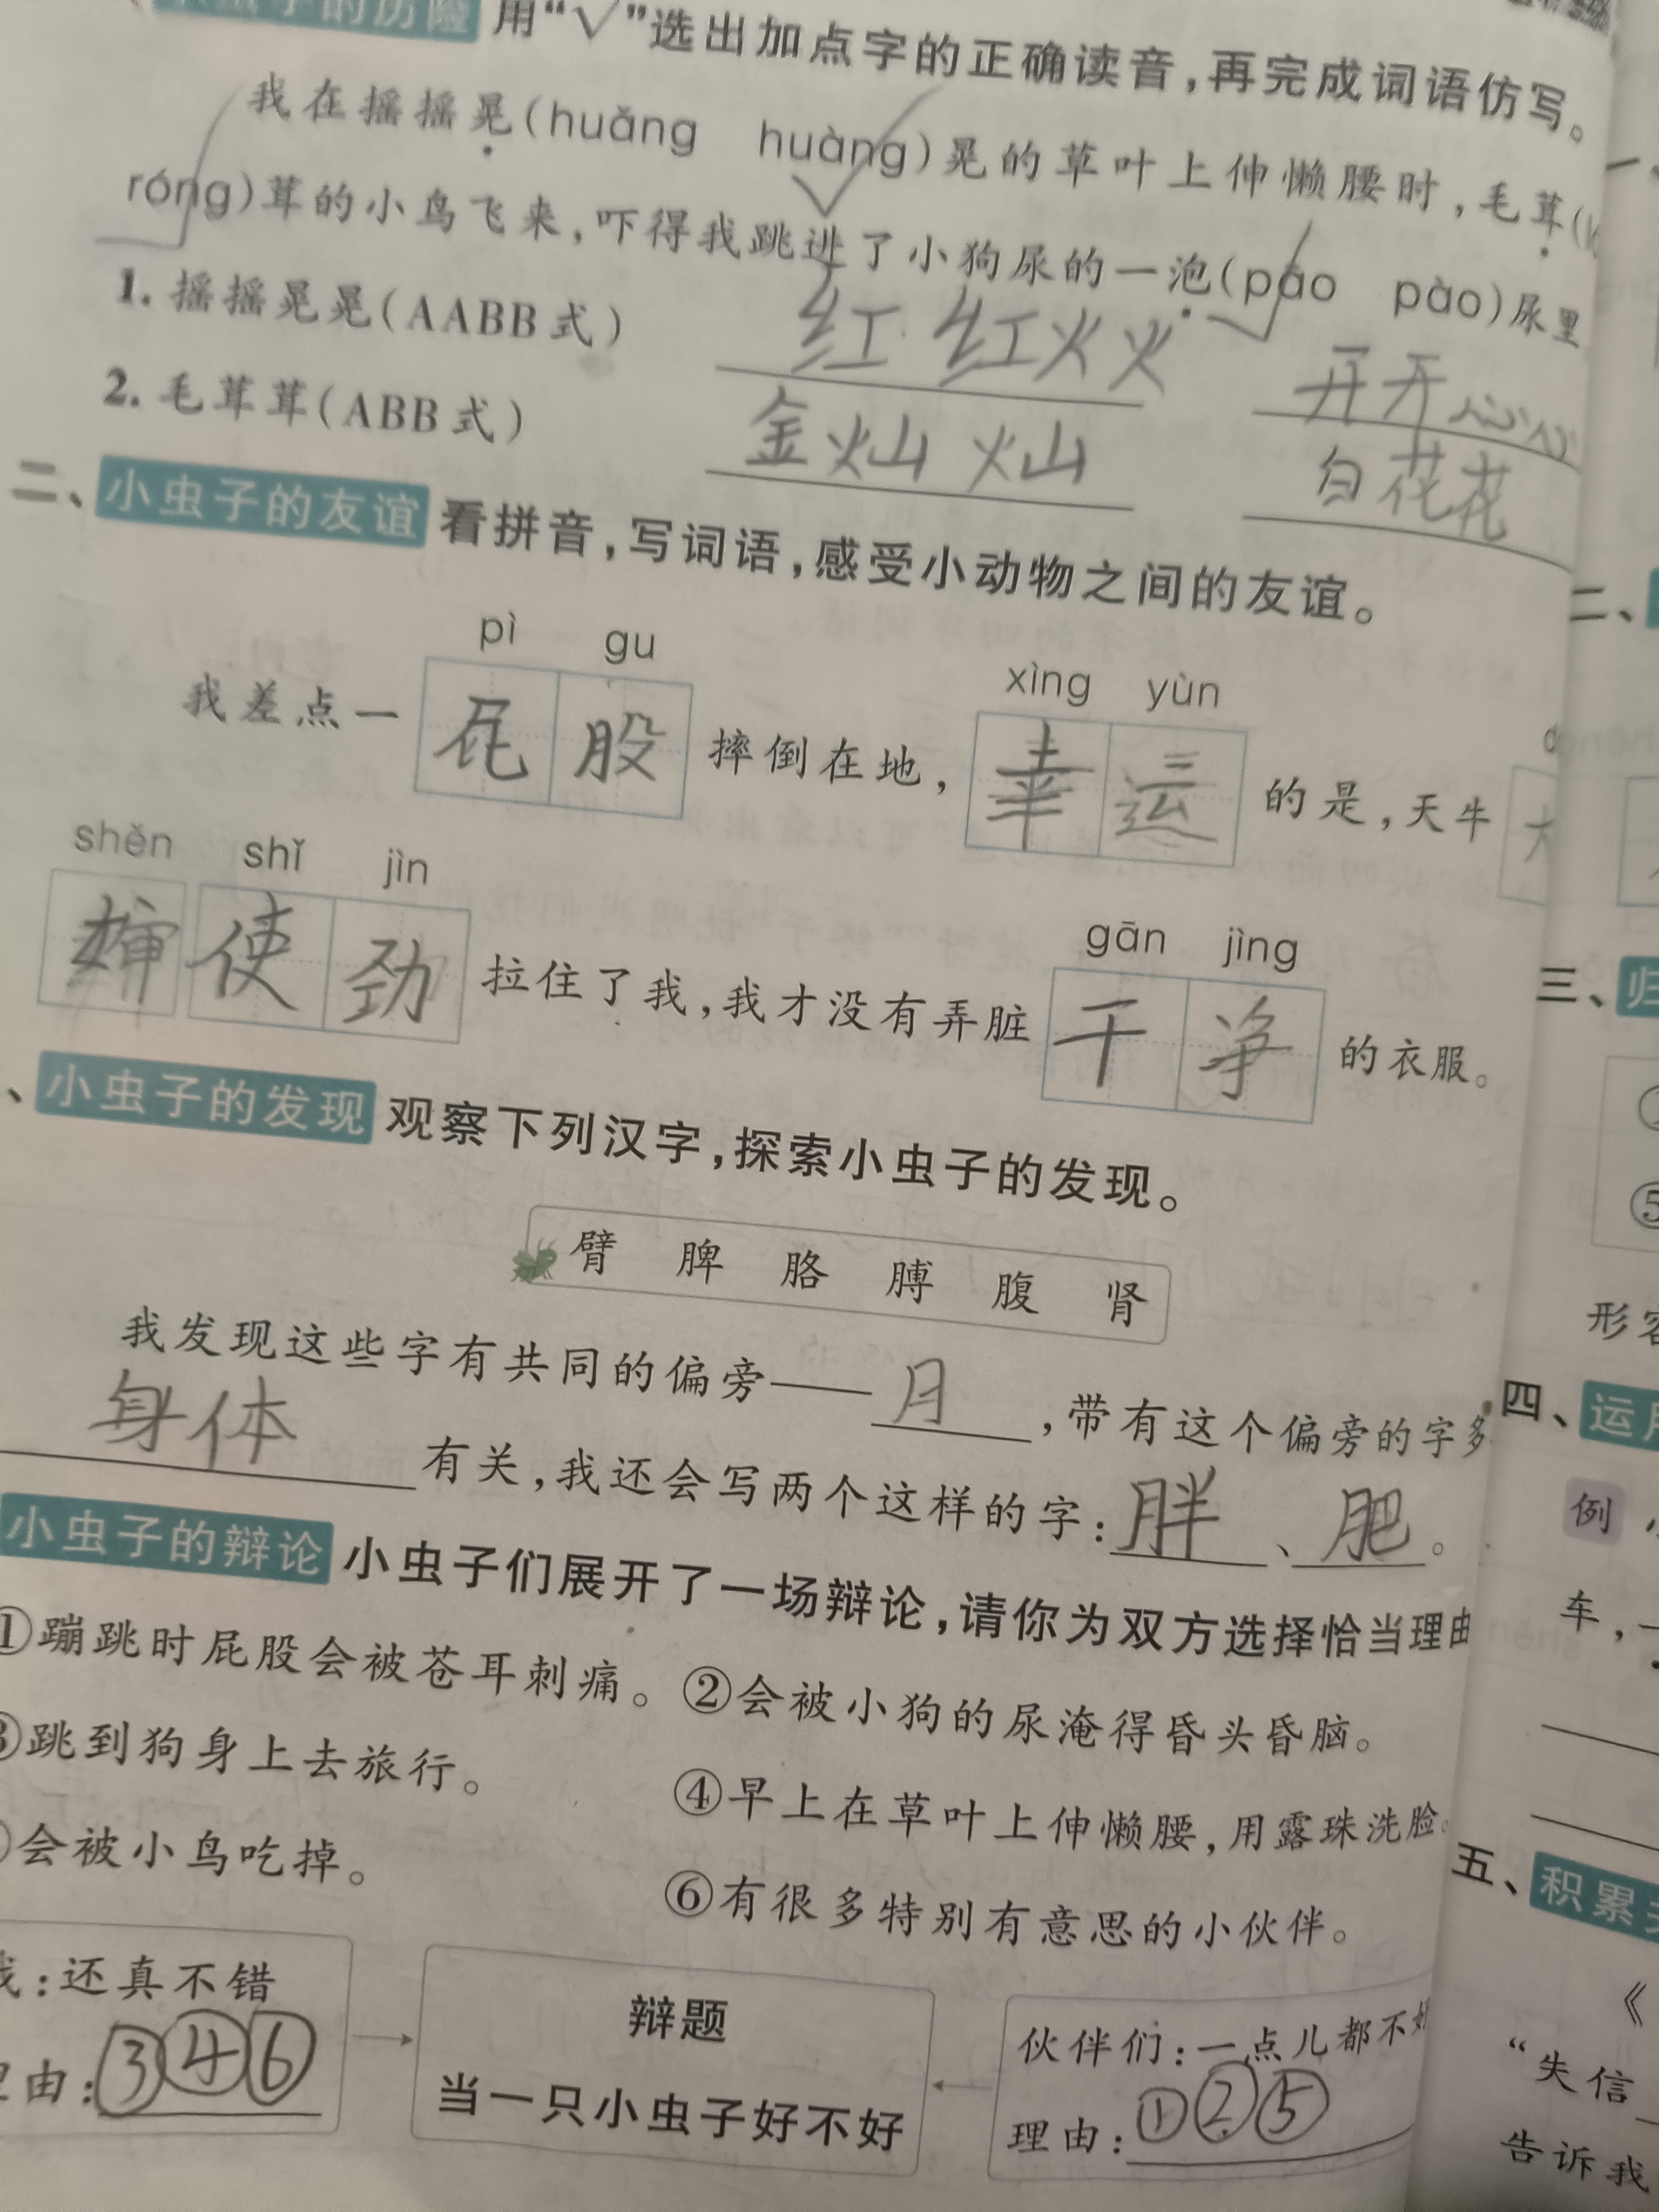 的历险 用“√”选出加点字的正确读音,再完成词语仿写。
我在摇摇晃(huǎng huàng)晃的草叶上伸懒腰时,毛茸(
róng)茸的小鸟飞来,吓得我跳进了小狗尿的一泡(pāo pào)尿里
1. 摇摇晃晃(AABB式) 红红火火 开开心心
2. 毛茸茸(ABB式) 金灿灿 白花花
二、小虫子的友谊 看拼音,写词语,感受小动物之间的友谊。
pì gu xìng yùn
我差点一 股 摔倒在地, 幸 运 的是,天牛
shěn shǐ jìn gān jìng
婶 使 劲 拉住了我,我才没有弄脏 干 净 的衣服。
、小虫子的发现 观察下列汉字,探索小虫子的发现。
臂 脾 胳 膊 腹 肾
我发现这些字有共同的偏旁——月,带有这个偏旁的字多
身体有关,我还会写两个这样的字:胖、肥。
小虫子的辩论 小虫子们展开了一场辩论,请你为双方选择恰当理由
①蹦跳时屁股会被苍耳刺痛。 ②会被小狗的尿淹得昏头昏脑。
③跳到狗身上去旅行。 ④早上在草叶上伸懒腰,用露珠洗脸。
会被小鸟吃掉。 ⑥有很多特别有意思的小伙伴。
我:还真不错
理由:③④⑥
辩题
当一只小虫子好不好
伙伴们:一点儿都不好
理由:①②⑤
二、
三、归
形容
四、运用
例
车,
五、积累
《
“失信
告诉我